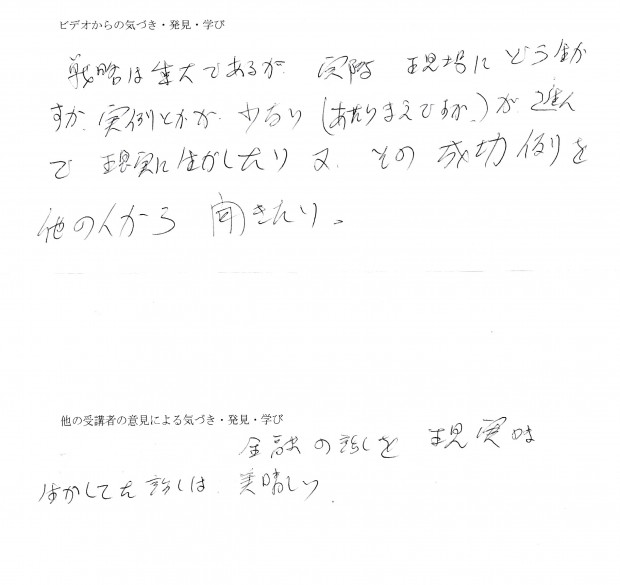 ビデオからの気づき・発見・学び
戦略は重大であるが 実際 現場にどう生か
すか、実例とかが、少ない(あたりまえですが、)が 進ん
で 現実に生かしたり 又、その 成功例を
他の人から 聞きたい。
他の受講者の意見による気づき・発見・学び
金融の話しを 現実に
生かしてた話しは 素晴しい